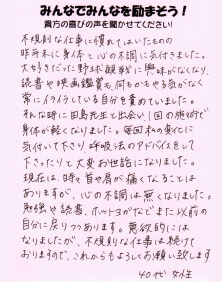 みんなでみんなを励まそう!
貴方の喜びの声を聞かせてください!
不規則な仕事に慣れてはいたものの
昨年末に身体と心の不調に気付きました。
大好きだった野球観戦に興味がなくなり、
読書や映画鑑賞も何もかもやる気がなく
常にイライラしている自分を責めていました。
そんな時に田島先生と出会い1回の施術で
身体が軽くなりました。毎回私の変化に
気付いて下さり呼吸法のアドバイスをして
下さったりと大変お世話になりました。
現在は、時々首や肩が痛くなることは
ありますが、心の不調は無くなりました。
勉強や読書、ホットヨガなどでまた以前の
自分に戻りつつあります。意欲的には
なりましたが、不規則な仕事は続けて
おりますので、これからもよろしくお願い致します
40代 女性